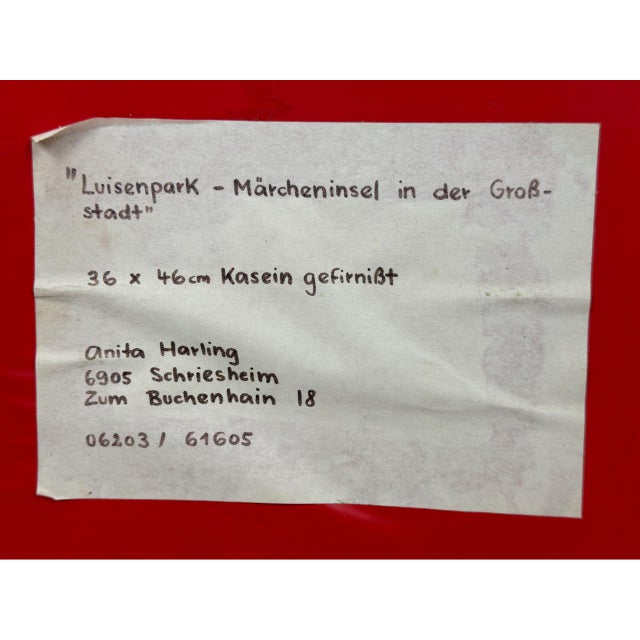 "Luisenpark - Märcheninsel in der Groß-
stadt"
36 x 46cm Kasein gefirnißt
Anita Harling
6905 Schriesheim
Zum Buchenhain 18
06203 / 61605